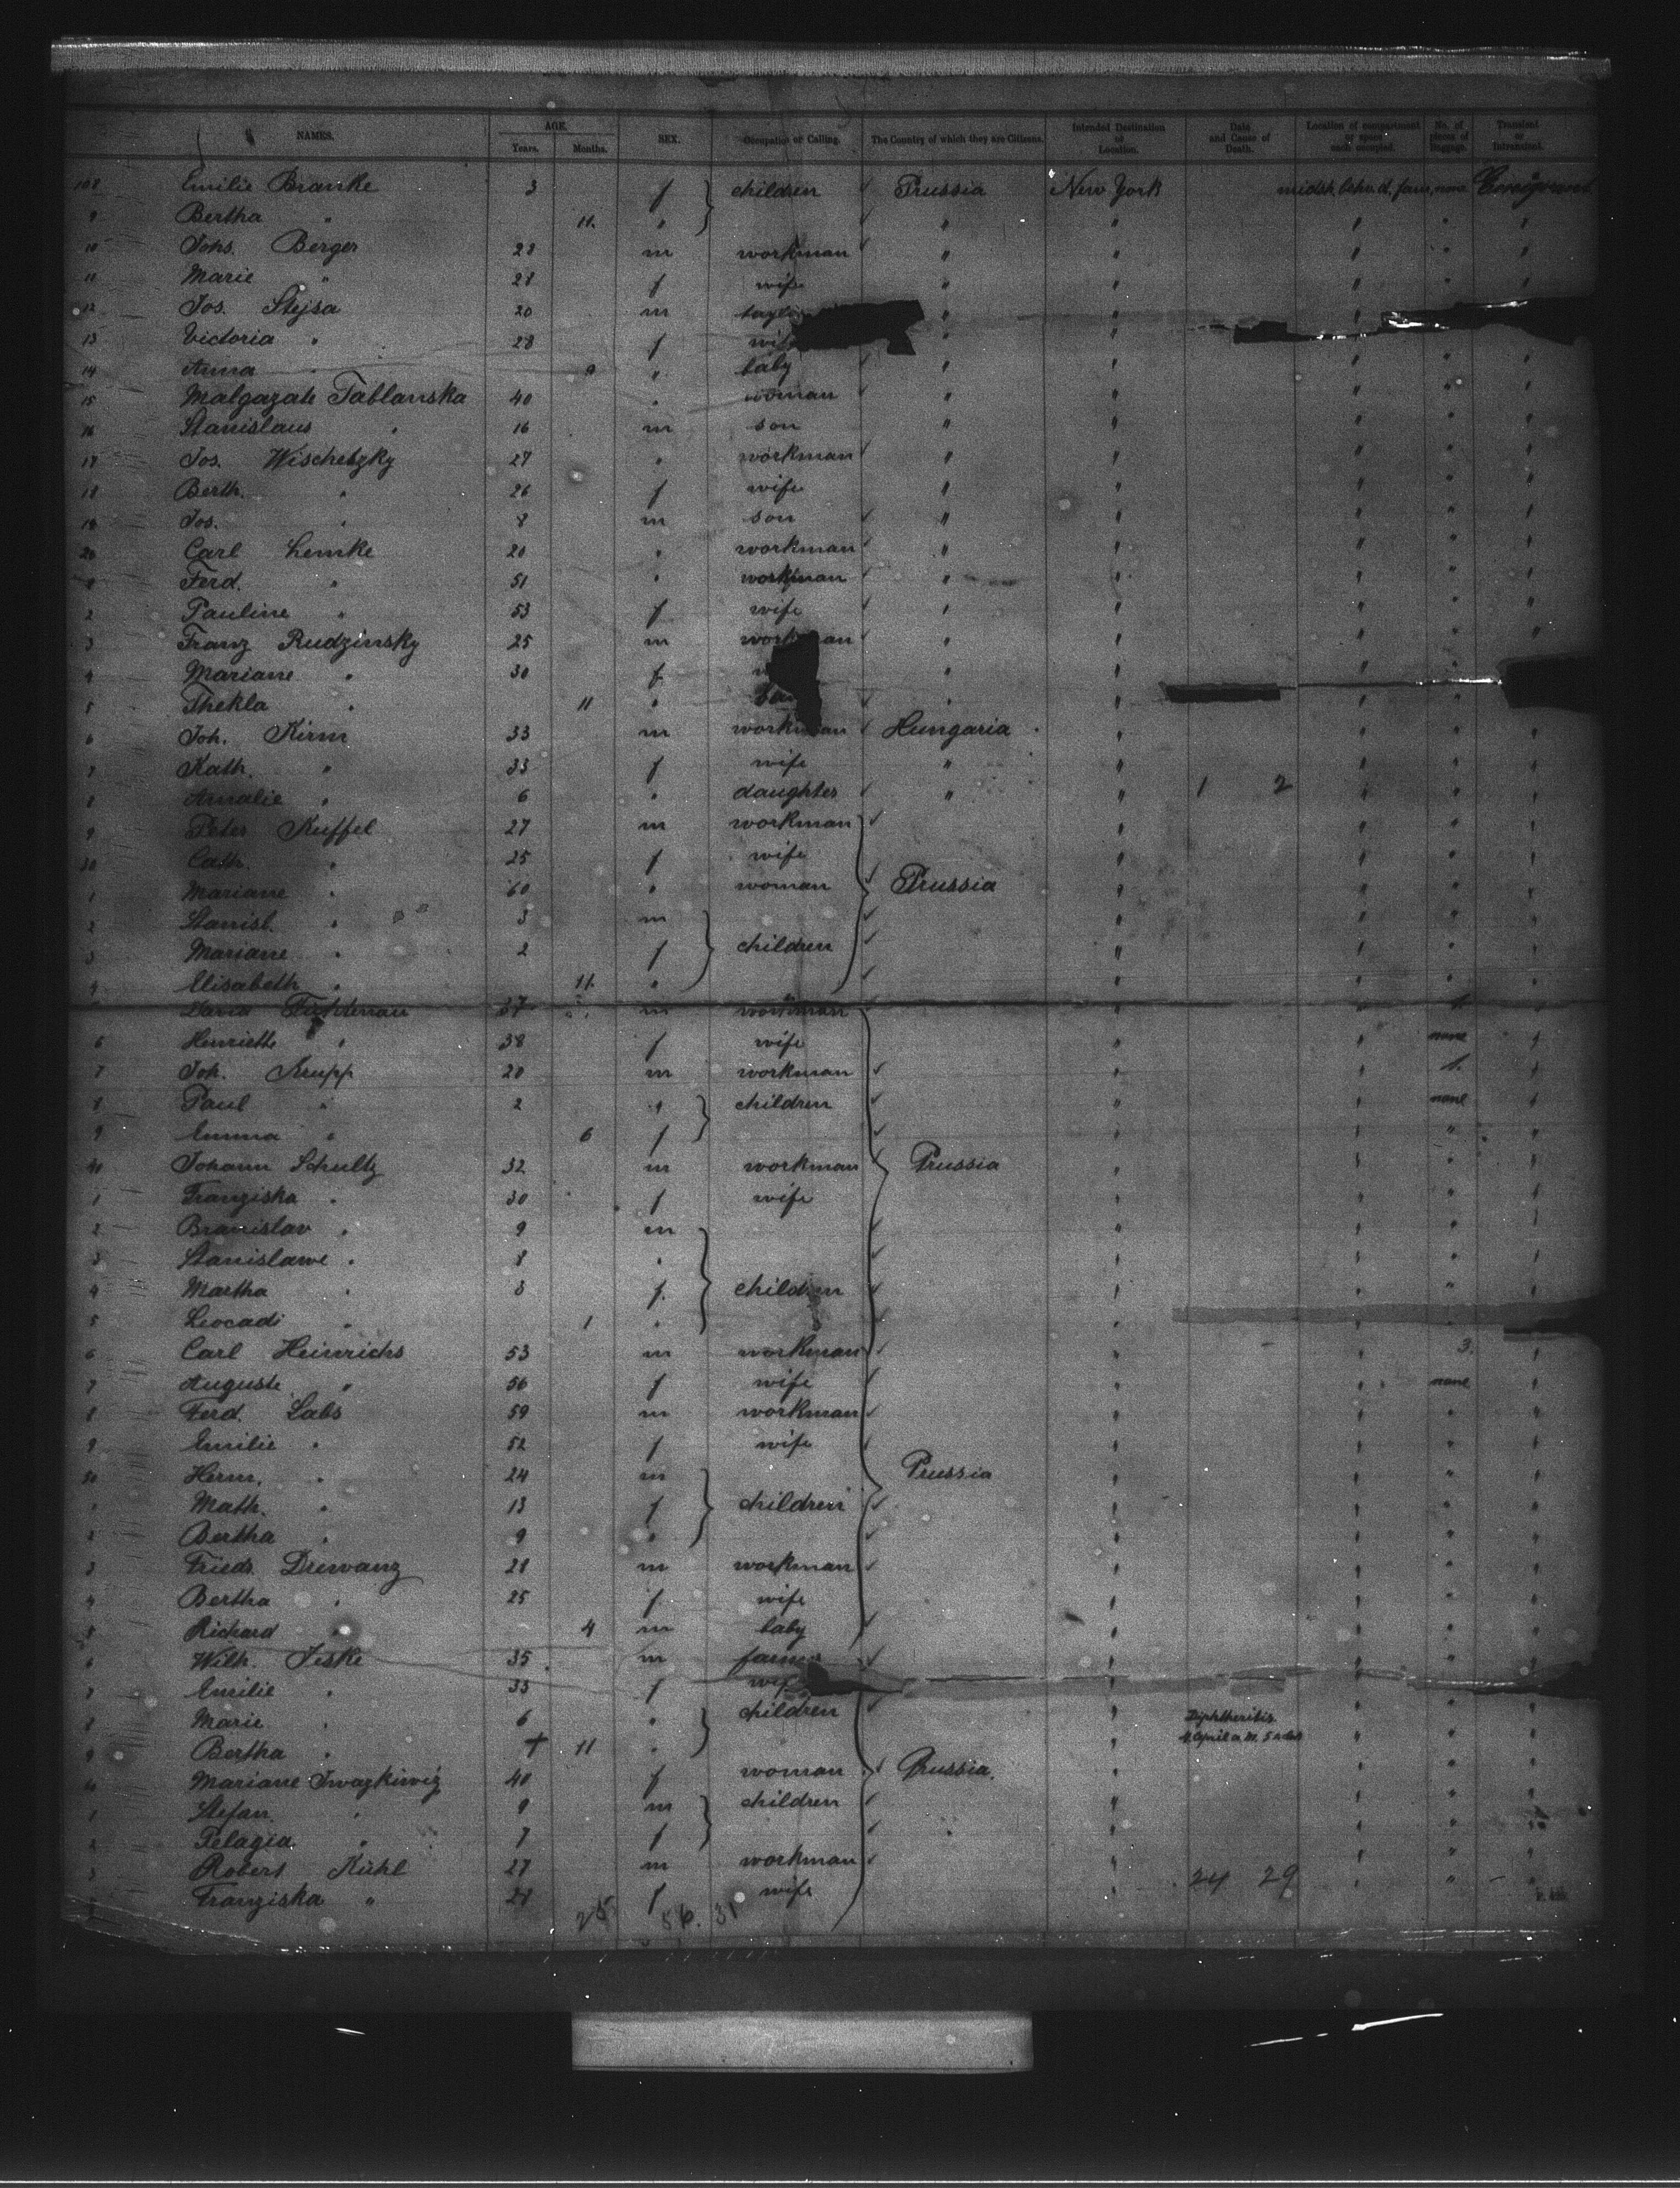 NAMES. AGE. Years. Months. SEX. Occupation or Calling. The Country of which they are Citizens. Intended Destination or Location. Date and Cause of Death. Location of compartment or space each occupied. No. of pieces of Baggage. Transient or Intransient.
108 Emilie Branke 3 f children Prussia New York none
9 Bertha " 11. " " " " " "
10 Johs. Berger 28 m workman " " " " "
11 Marie " 28 f wife " " " " "
12 Jos. Stejsa 20 m " " "
13 Victoria " 28 f " "
14 Anna " 9 " baby " " " " "
15 Malgazate Tablanska 40 " woman " " " " "
16 Stanislaus " 16 m son " " " " "
17 Jos. Wischetzky 27 " workman " " " " "
18 Berth. " 26 f wife " " " " "
19 Jos. " 8 m son " " " " "
20 Carl Lemke 20 " workman " " " " "
1 Ferd. " 51 " workman " " " " "
2 Pauline " 53 f wife " " " " "
3 Franz Rudzinsky 25 m workman " " " " "
4 Mariane " 30 f " " "
5 Thekla " 11 " " " " "
6 Joh. Kirm 33 m workman Hungaria " " " "
7 Kath. " 33 f wife " " " " "
8 Amalie " 6 " daughter " " 1 2 " " "
9 Peter Kuffel 27 m workman " " " "
30 Cath. " 25 f wife " " " "
1 Mariane " 60 " woman Prussia " " " "
2 Stanisl. " 3 m " " " "
3 Mariane " 2 f children " " " "
4 Elisabeth " 11. " " " " "
37 m workman " " 1. "
6 Henriette " 38 f wife " " none "
7 Joh. Krupp 28 m workman " " 1. "
8 Paul " 2 " children " " none "
9 Emma " 6 f " " " "
40 Johann Schultz 32 m workman Prussia " " " "
1 Franziska " 30 f wife " " " "
2 Branislav " 9 m " " " "
3 Stanislawe " 8 " " " " "
4 Martha " 3 f. children " " " "
5 Leocadi " 1 " " " "
6 Carl Heinrichs 53 m workman " " 3. "
7 Auguste " 56 f wife " " none "
8 Ferd. Labs 59 m workman " " " "
9 Emilie " 52 f wife " " " "
50 Herm. " 24 m Prussia " " " "
1 Math. " 13 f children " " " "
2 Bertha " 9 " " " " "
3 Friedr. Drewanz 28 m workman " " " "
4 Bertha " 25 f wife " " " "
5 Richard " 4 m baby " " " "
6 Wilh. Jeske 35 m farmer " " " "
7 Emilie " 33 f wife " " " "
8 Marie " 6 " children " Diphtheritis " " "
9 Bertha " + 11 " " " " "
60 Mariane Iwazkiwiz 40 f woman Prussia. " " " "
1 Stefan " 9 m children " " " "
2 Pelagia " 7 f " " " "
3 Robert Kühl 27 m workman " 24 29 " " "
Franziska " 28 f wife " " "
25. 56. 31